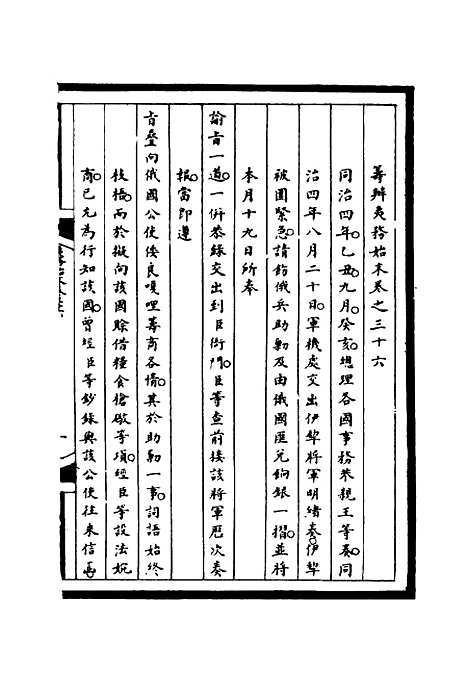 籌辦夷務始末卷之三十六
同治四年乙丑九月癸亥總理各國事務恭親王等奏同
治四年八月二十日軍機處交出伊犂將軍明緒奏伊犂
被圍緊急請飭俄兵助勦及由俄國匯兌餉銀一摺並將
本月十九日所奉
諭旨一道一併恭錄交出到臣衙門臣等查前接該將軍歷次奏
報當即遵
旨疊向俄國公使倭良嘎哩籌商各情其於助勦一事詞語始終
枝梧而於擬向該國賒借糧食槍礮等項經臣等設法婉
商已允為行知該國曾經臣等鈔錄與該公使往來信函